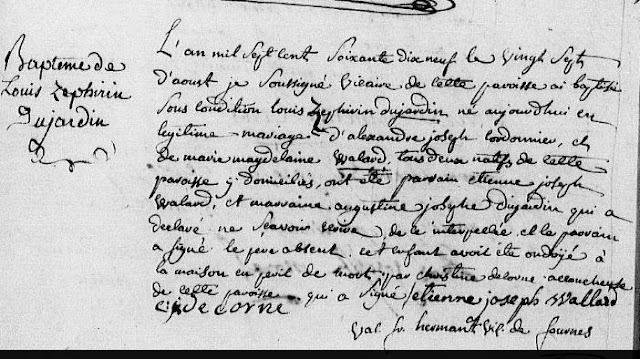 Bapteme de
Louis Zephirin
Dujardin
L'an mil sept cent soixante dix neuf le vingt sept
d'aoust je soussigné vicaire de cette paroisse ai baptisé
sous condition Louis Zephirin dujardin ne aujourdhui en
legitime mariage d'alexandre joseph cordonnier, et
de marie magdelaine Walard, tous deux natifs de cette
paroisse y domiciliés, ont été parain etienne joseph
Walard, et marraine augustine josephe dujardin qui a
declaré ne scavoir ecrire, de ce interpellée et le parain
a signé le pere absent, cet enfant avoit été ondoyé à
la maison en peril de mort par christine decorne accoucheuse
de cette paroisse qui a signé etienne joseph Wallard
decorne
Val. fr. hermant vic. de fournes